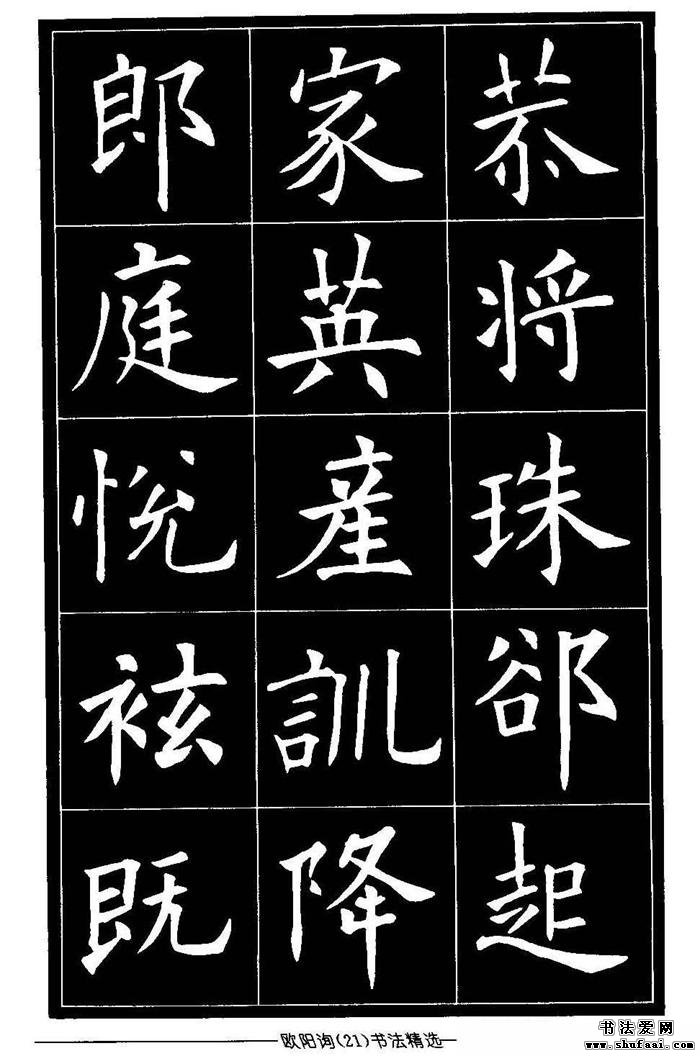 恭将珠郤起
家英産訓降
郎庭悦袨既
欧阳询(21)书法精选
书法爱网
www.shufaai.com